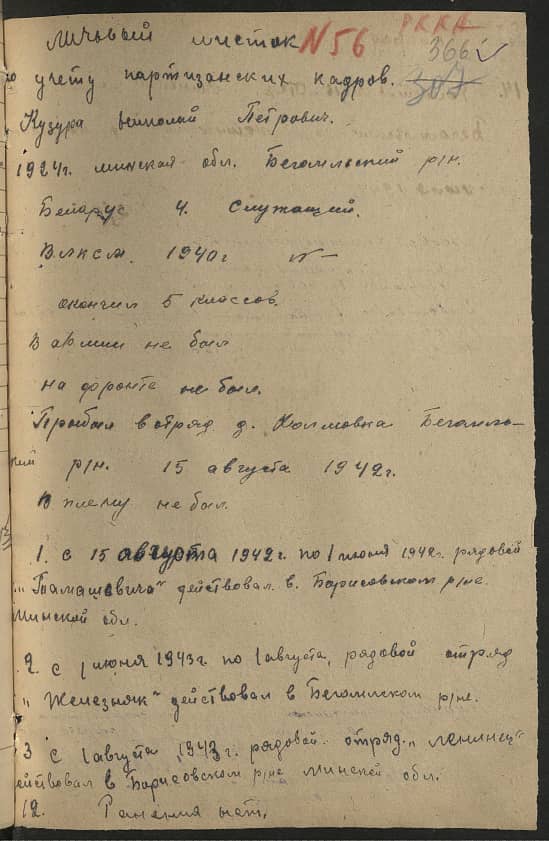 РККА
личный листок N56 366
учету партизанских кадров.
Кузура николай Петрович.
1924г. минская обл. Бегомльский р/н.
Беларус 4. Служащий.
ВЛКСМ. 1940г
окончил 5 классов.
В армии не был
на фронте не был.
Прибыл в отряд д. Холмовка Бегомль-
р/н. 15 августа 1942г.
В плену не был.
1. с 15 августа 1942г. по 1 июня 1942г. рядовой
действовал в. Борисовском р/не.
Минской обл.
2. с 1 июня 1943г. по 1 августа, рядовой отряд
„Железняк" действовал в Бегомлском р/не.
3 с 1 августа 1943г. рядовой. отряд. „Ленинец"
ействовал в Борисовском р/не Минской обл.
12. Ранения нет.